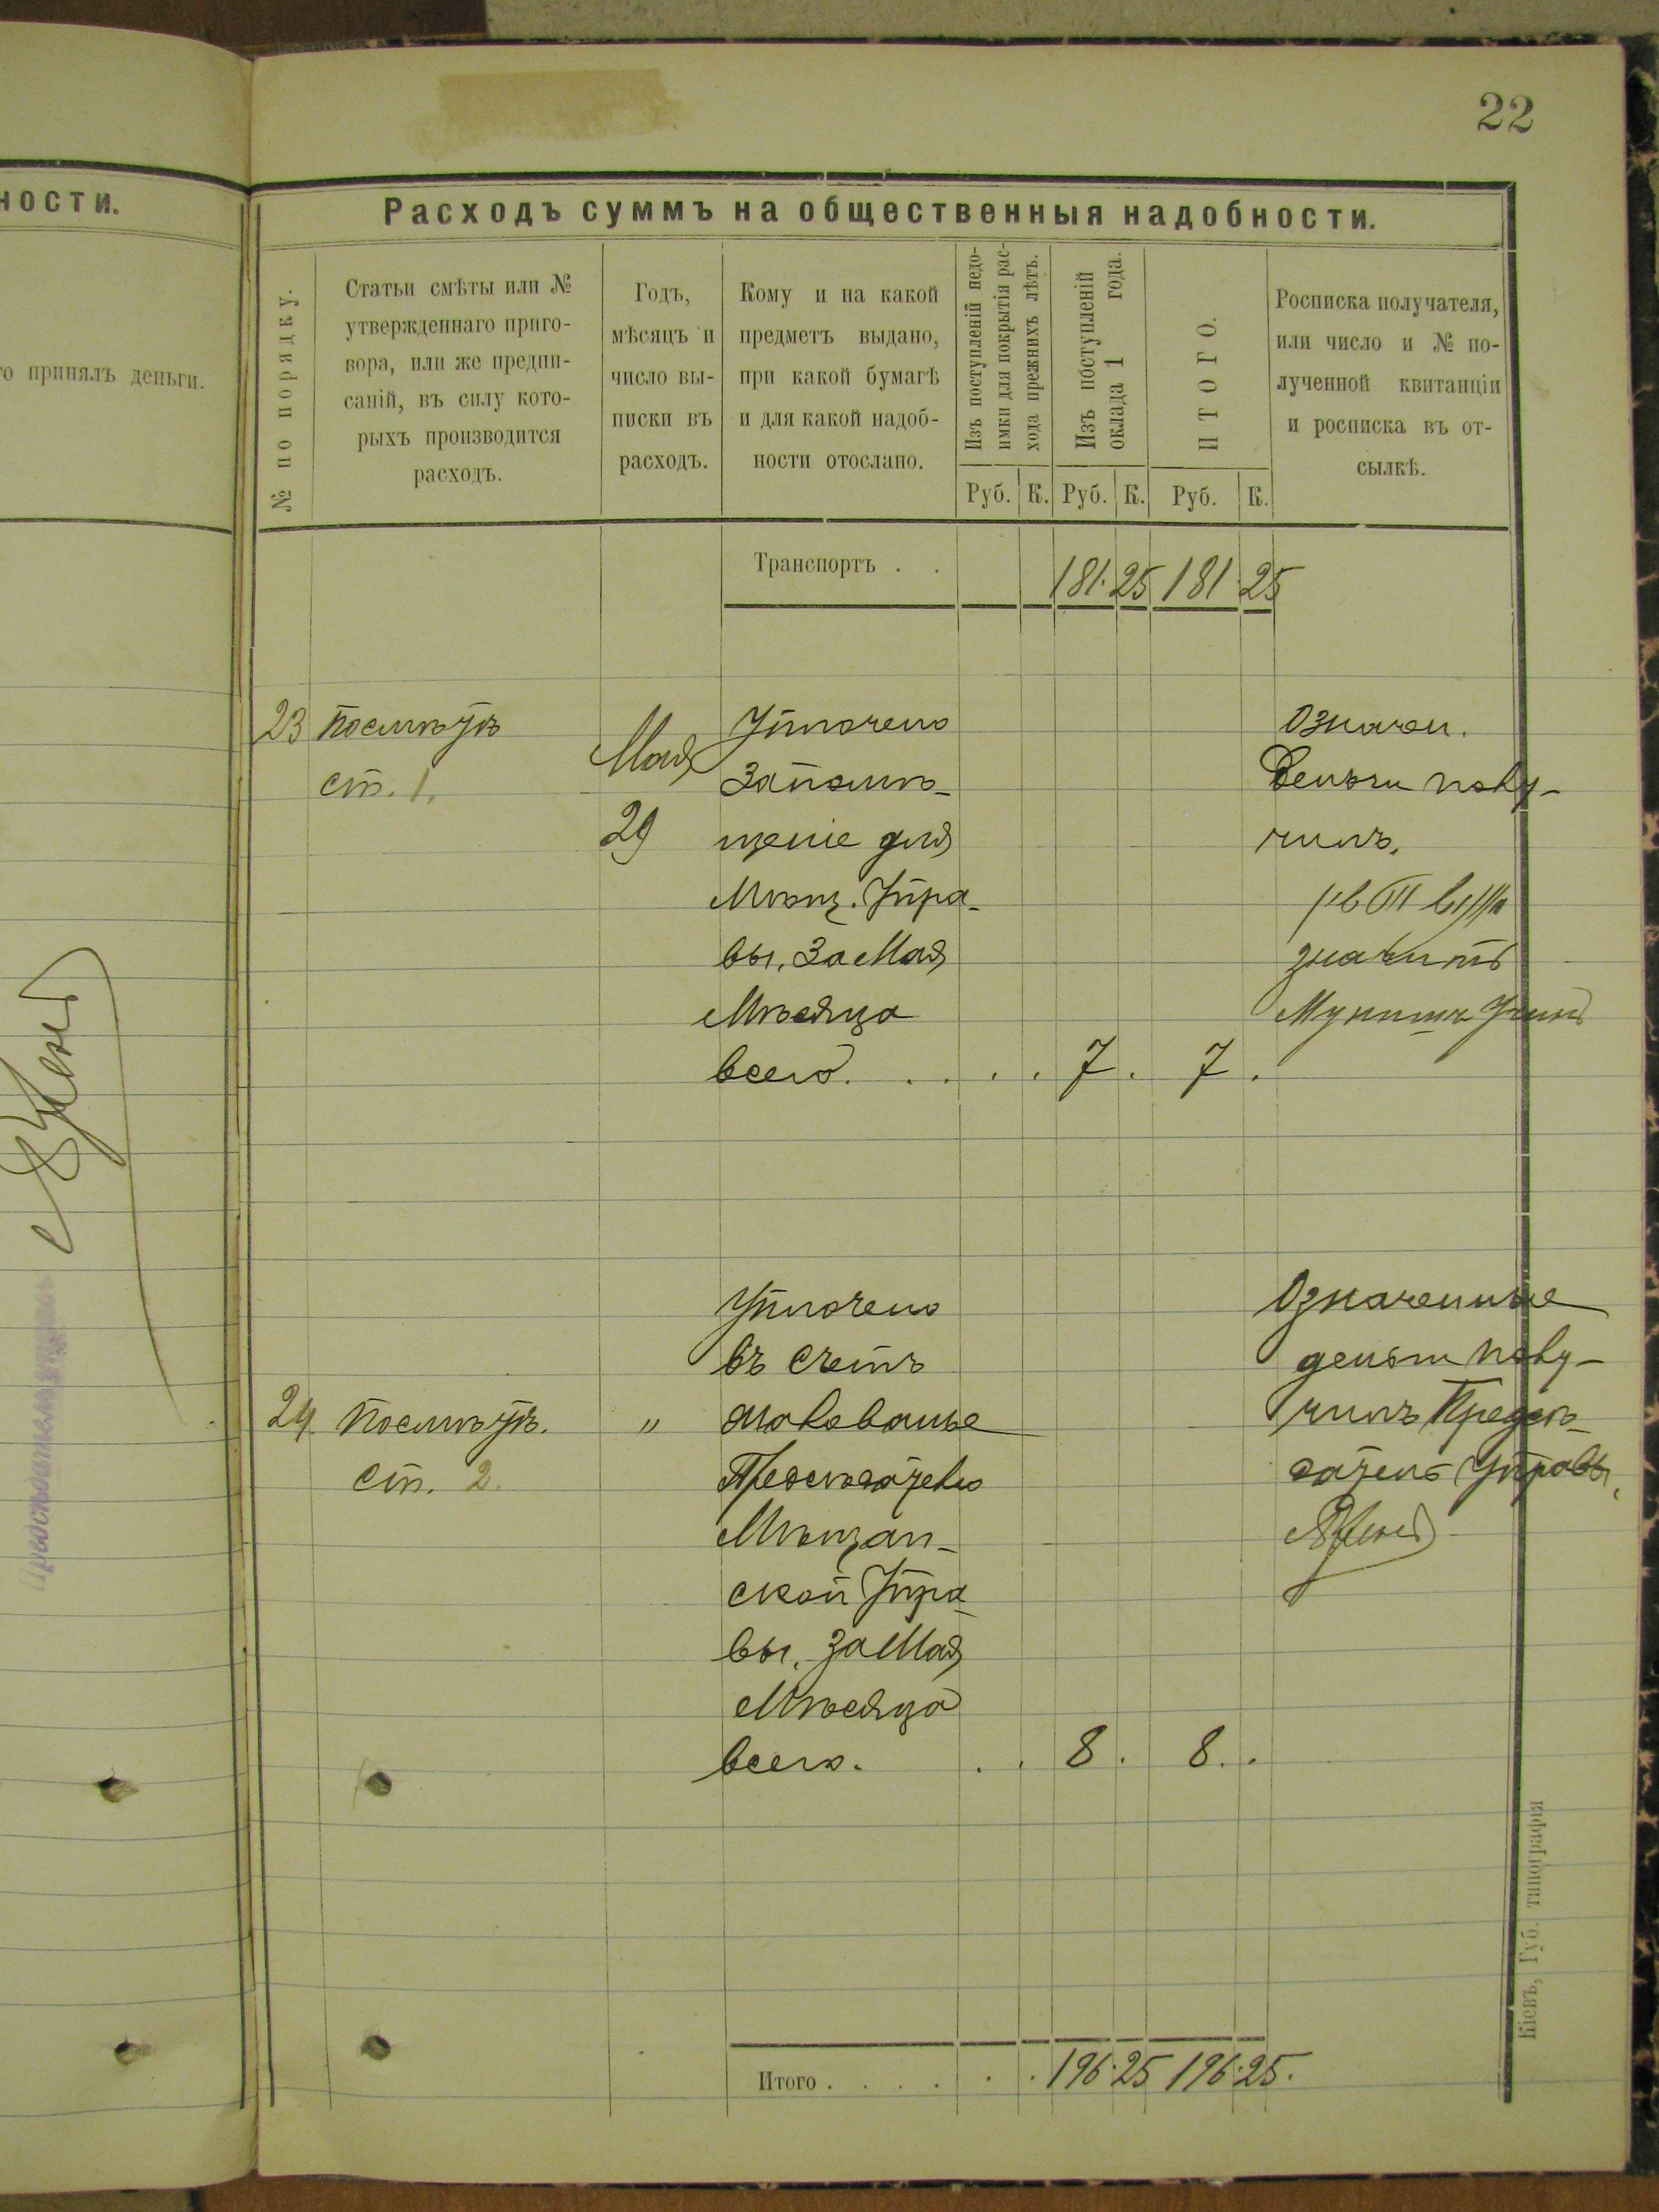 22
ности.
го принялъ деньги.
Расходъ суммъ на общественныя надобности.
№ по порядку.
Статьи смѣты или №
утвержденнаго приго-
вора, или же предпи-
саній, въ силу кото-
рыхъ производится
расходъ.
Годъ,
мѣсяцъ и
число вы-
писки въ
расходъ.
Кому и на какой
предметъ выдано,
при какой бумагѣ
и для какой надоб-
ности отослано.
Изъ поступленій недо-
имки для покрытія рас-
хода прежнихъ лѣтъ.
Изъ поступленій
оклада 1 года.
ИТОГО.
Росписка получателя,
или число и № по-
лученной квитанціи
и росписка въ от-
сылкѣ.
Руб. К. Руб. К. Руб. К.
Транспортъ . . 181.25 181.25
23
ст. 1.
Мая
29
Уплочено
За помѣ-
щеніе для
Мѣщ. Упра-
вы, За Мая
Мѣсяца
всего. . . . . 7 . 7 .
Означен.
Деньги полу-
чилъ,
значитъ
Уплочено
въ счетъ
жалованье
Председателю
Мѣщан-
ской Упра-
вы, за Мая
Мѣсяца
всего. . . 8 . 8 . .
24
ст. 2.
"
Означенные
деньги полу-
чилъ Предсѣ-
датель Управы,
Итого . . . . . . 196.25 196.25.
Кіевъ, Губ. типографія